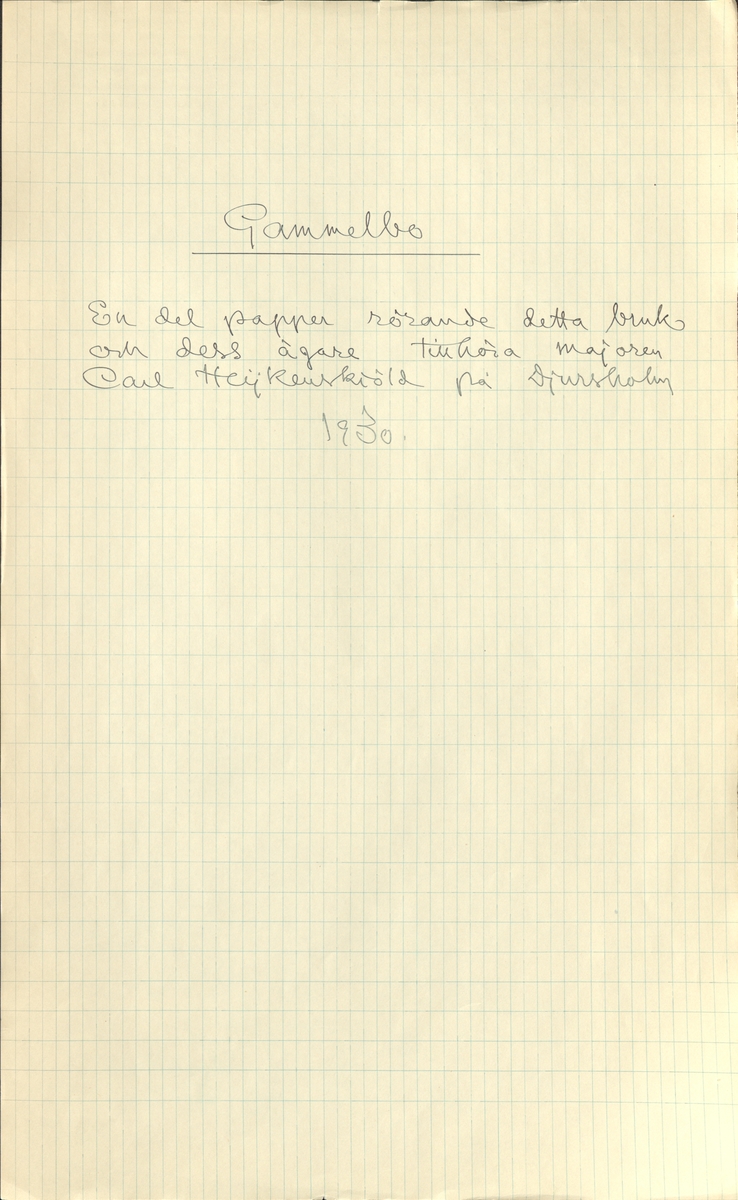 Gammelbo
En del papper rörande detta bruk
och dess ägare tillhöra majoren
Carl Heijkenskiöld på Djursholm
1930.